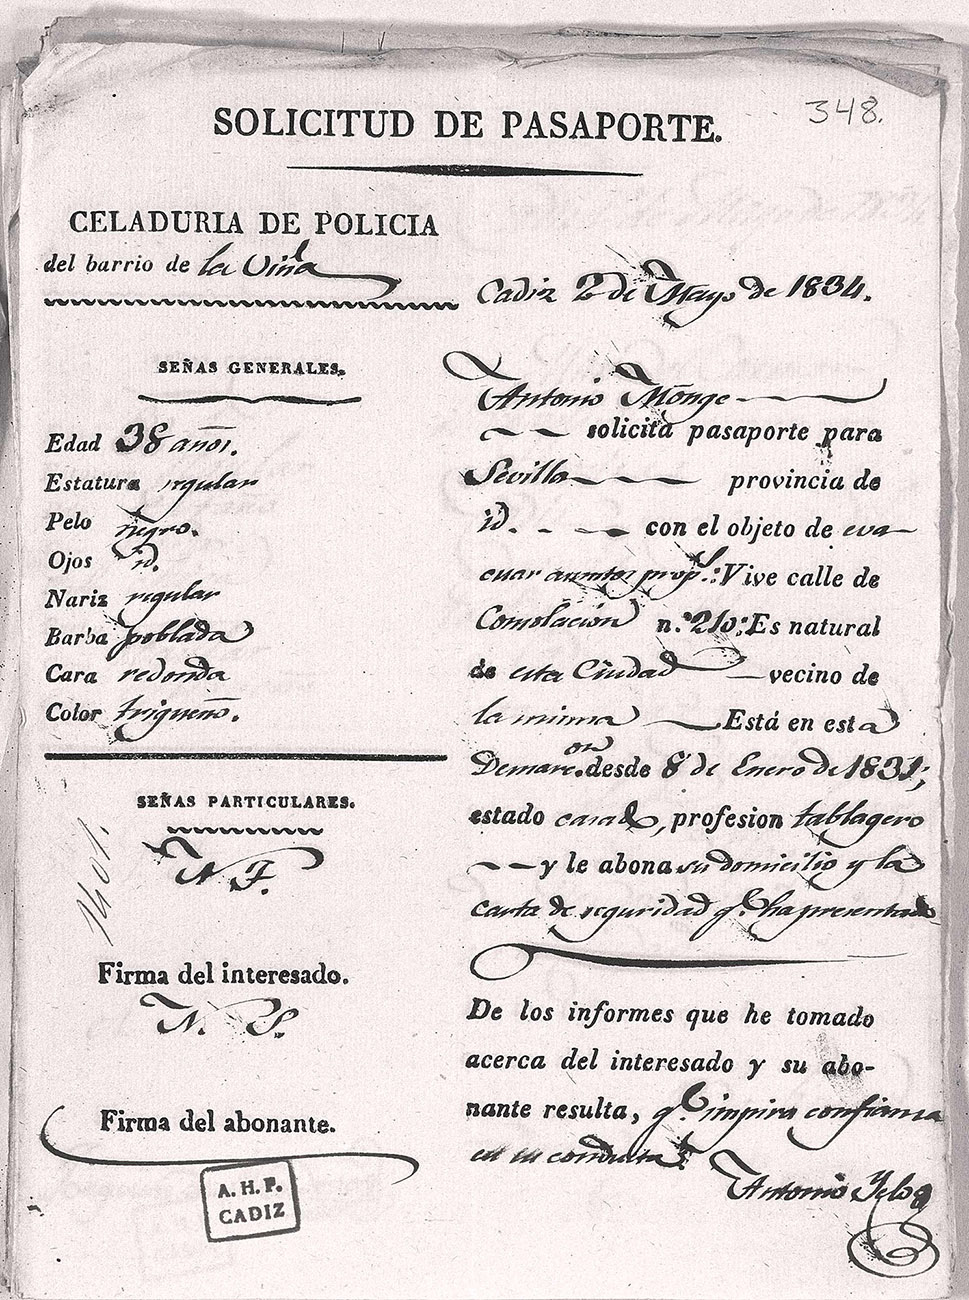 348.
SOLICITUD DE PASAPORTE.
CELADURIA DE POLICIA
del barrio de la Viña
Cadiz 2 de Mayo de 1834.
SEÑAS GENERALES.
Edad 38 años.
Estatura regular
Pelo negro.
Ojos id.
Nariz regular
Barba poblada
Cara redonda
Color trigueño.
SEÑAS PARTICULARES.
Firma del interesado.
Firma del abonante.
A. H. P.
CADIZ
Antonio Monge
solicita pasaporte para
Sevilla provincia de
id. con el objeto de eva-
cuar asuntos prop.s: Vive calle de
Consolacion n.º : Es natural
de esta Ciudad vecino de
la misma Está en esta
Demarc.on desde 8 de Enero de 1831;
estado casado, profesion tablagero
y le abona su domicilio y la
carta de seguridad q.e ha presentado
De los informes que he tomado
acerca del interesado y su abo-
nante resulta, q.e inspira confianza
en su conducta
Antonio